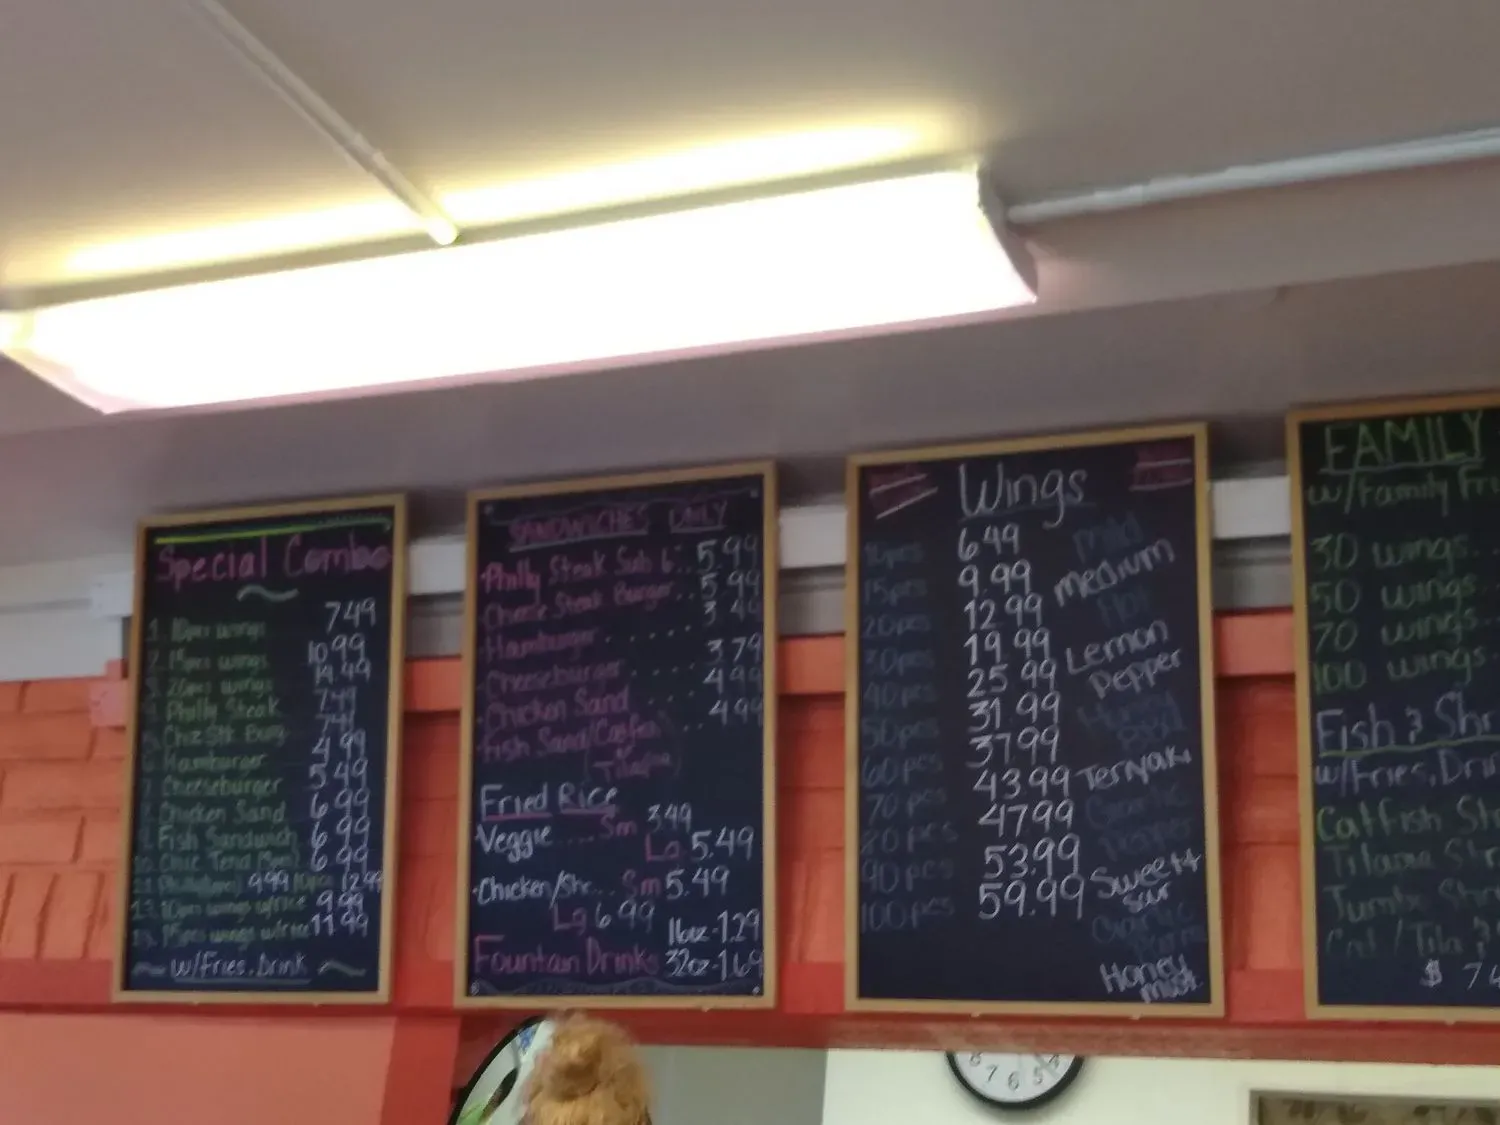 Special Combo
1. 10pcs wings 7.49
2. 15pcs wings 10.99
3. 20pcs wings 14.99
4. Philly Steak 7.49
7.49
6. Hamburger 4.99
7. Cheeseburger 5.49
8. Chicken Sand 6.99
9. Fish Sandwich 6.99
10. Chic Tend 6.99
9.99 10pcs 12.99
12. 10pcs wings w/rice 9.99
13. 15pcs wings w/rice 11.99
w/Fries, Drink
SANDWICHES DAILY
Philly Steak Sub 6".. 5.99
Cheese Steak Burger.. 5.99
Hamburger ...... 3.49
Cheeseburger .... 3.79
Chicken Sand ... 4.99
Fish Sand (Catfish .. 4.99
Tilapia)
Fried Rice
Veggie ..... Sm 3.49
Lg 5.49
Chicken/Shr... Sm 5.49
Lg 6.99
Fountain Drinks 16oz-1.29
32oz-1.69
Wings
10pcs 6.49 Mild
15pcs 9.99 Medium
20pcs 12.99 Hot
30pcs 19.99 Lemon
40pcs 25.99 Pepper
50pcs 31.99
60pcs 37.99
70pcs 43.99 Teriyaki
80pcs 47.99
90pcs 53.99
100pcs 59.99 Sweet &
Sour
Garlic
Parm
Honey
Must.
FAMILY
w/Family Fri
30 wings..
50 wings..
70 wings..
100 wings..
Fish & Shr
w/Fries, Drin
Catfish St
Tilapia Str
Jumbo Shr
Cat/Tila &
$ 7.4
8 7 6 5 4